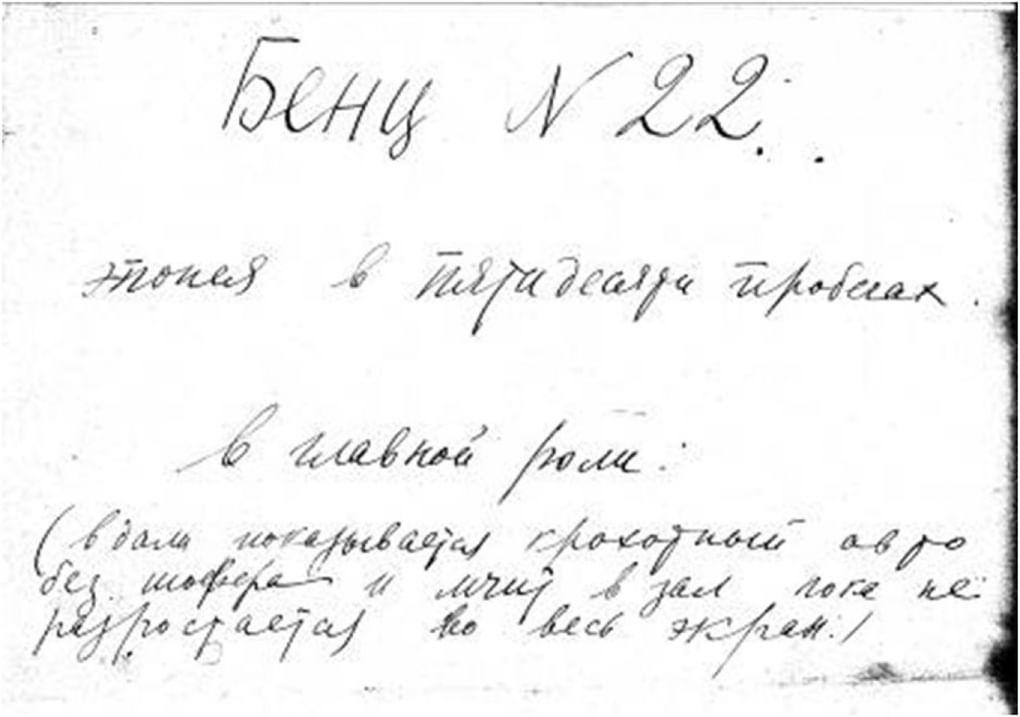 Бенц N 22.
этопея в пятидесяти пробегах.
в главной роли:
(вдали показывается крохотный авто
без шофера и мчит в зал пока не
разростается во весь экран.)